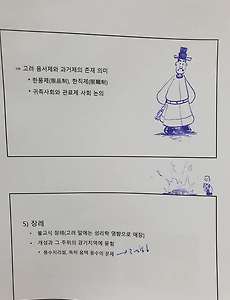 ⇒ 고려 음서제와 과거제의 존재 의미
• 한품제(限品制), 한직제(限職制)
• 귀족사회와 관료제 사회 논의
5) 장례
• 불교식 장례(고려 말에는 성리학 영향으로 매장)
• 개성과 그 주위의 경기지역에 묻힘
• 풍수지리설, 특히 음택 풍수의 문제